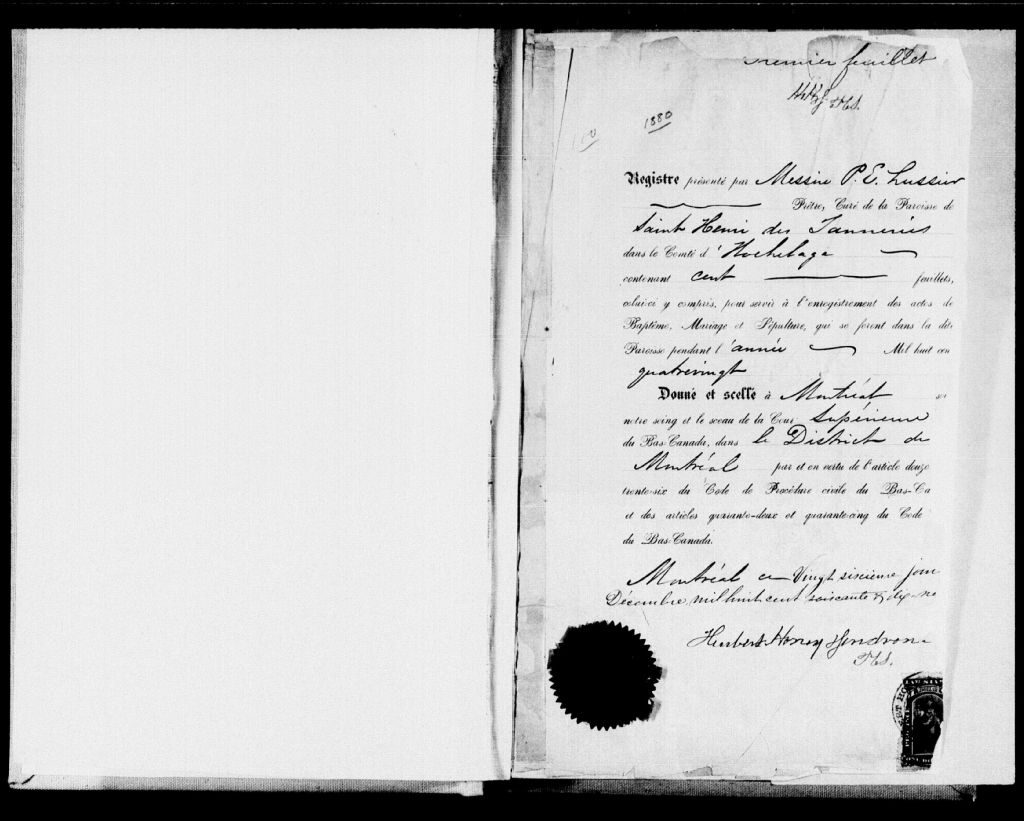 Premier feuillet
1880
Registre présenté par Messire P. E. Lussier
Prêtre, Curé de la Paroisse de
Saint Henri des Tanneries
dans le Comté d'Hochelaga
contenant cent feuillets,
celui-ci y compris, pour servir à l'enregistrement des actes de
Baptême, Mariage et Sépulture, qui se feront dans la dite
Paroisse pendant l'année Mil huit cen
quatrevingt
Donné et scellé à Montréal
notre seing et le sceau de la Cour Supérieure
du Bas-Canada, dans le District de
Montréal par et en vertu de l'article douze
trente-six du Code de Procédure civile du Bas-Ca
et des articles quarante-deux et quarante-cinq du Code
du Bas-Canada.
Montréal ce Vingt sixieme jour
Décembre mil huit cent soixante & dix-ne
Herbert Honey